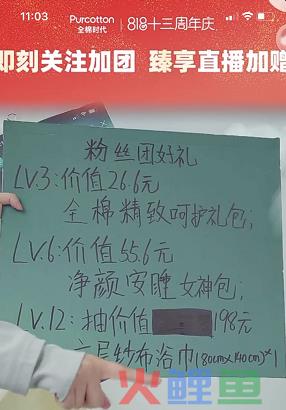 11:03
Purcotton
全棉时代
818十三周年庆
即刻关注加团 臻享直播加赠
粉丝团好礼
LV.3:价值26.6元
全棉精致呵护礼包;
LV.6:价值55.6元
净颜安睡女神包;
LV.12:抽价值 198元
六层纱布浴巾(80cm×140cm)*1
火鲤鱼